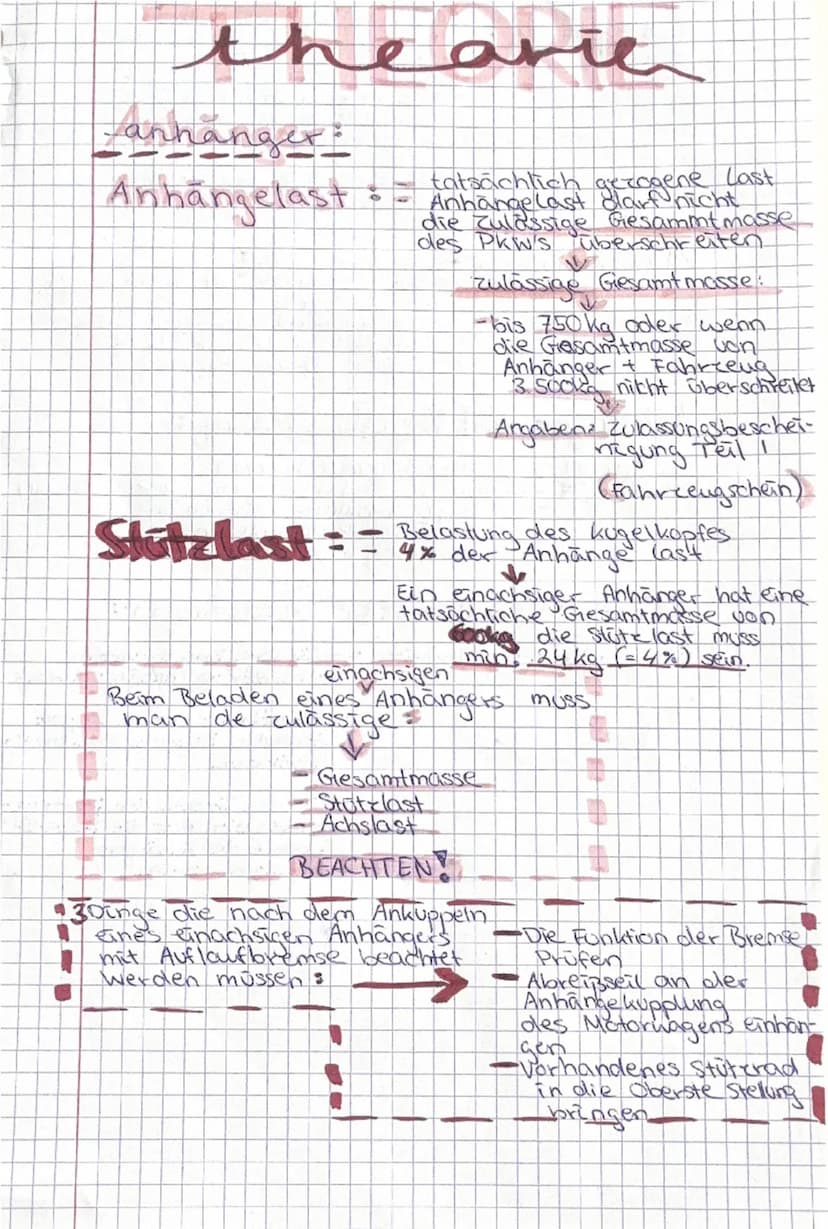 THEORIE
theorie
anhänger:
Anhängelast : = tatsächlich gezogene Last
Anhängelast darf nicht
die zulässige Gesammtmasse
des PKW's überschreiten
zulässige Gesamtmasse:
- bis 750 kg oder wenn
die Gesamtmasse von
Anhänger + Fahrzeug
3.500kg nicht überschreitet
Angaben: Zulassungsbeschei-
nigung Teil 1
(Fahrzeugschein)
Stützlast : = Belastung des Kugelkopfes
4% der Anhänge last
Ein einachsiger Anhänger hat eine
tatsächliche Gesamtmasse von
600kg die Stützlast muss
min. 24 kg (=4%) sein.
einachsigen
Beim Beladen eines Anhängers muss
man de zulässige:
- Gesamtmasse
- Stützlast
- Achslast
BEACHTEN!
3 Dinge die nach dem Ankuppeln
eines einachsigen Anhängers
mit Auflaufbremse beachtet
werden müssen:
- Die Funktion der Bremse
Prüfen
- Abreißseil an der
Anhängekupplung
des Motorwagens einhän-
gen
- Vorhandenes Stützrad
in die Oberste Stellung
bringen